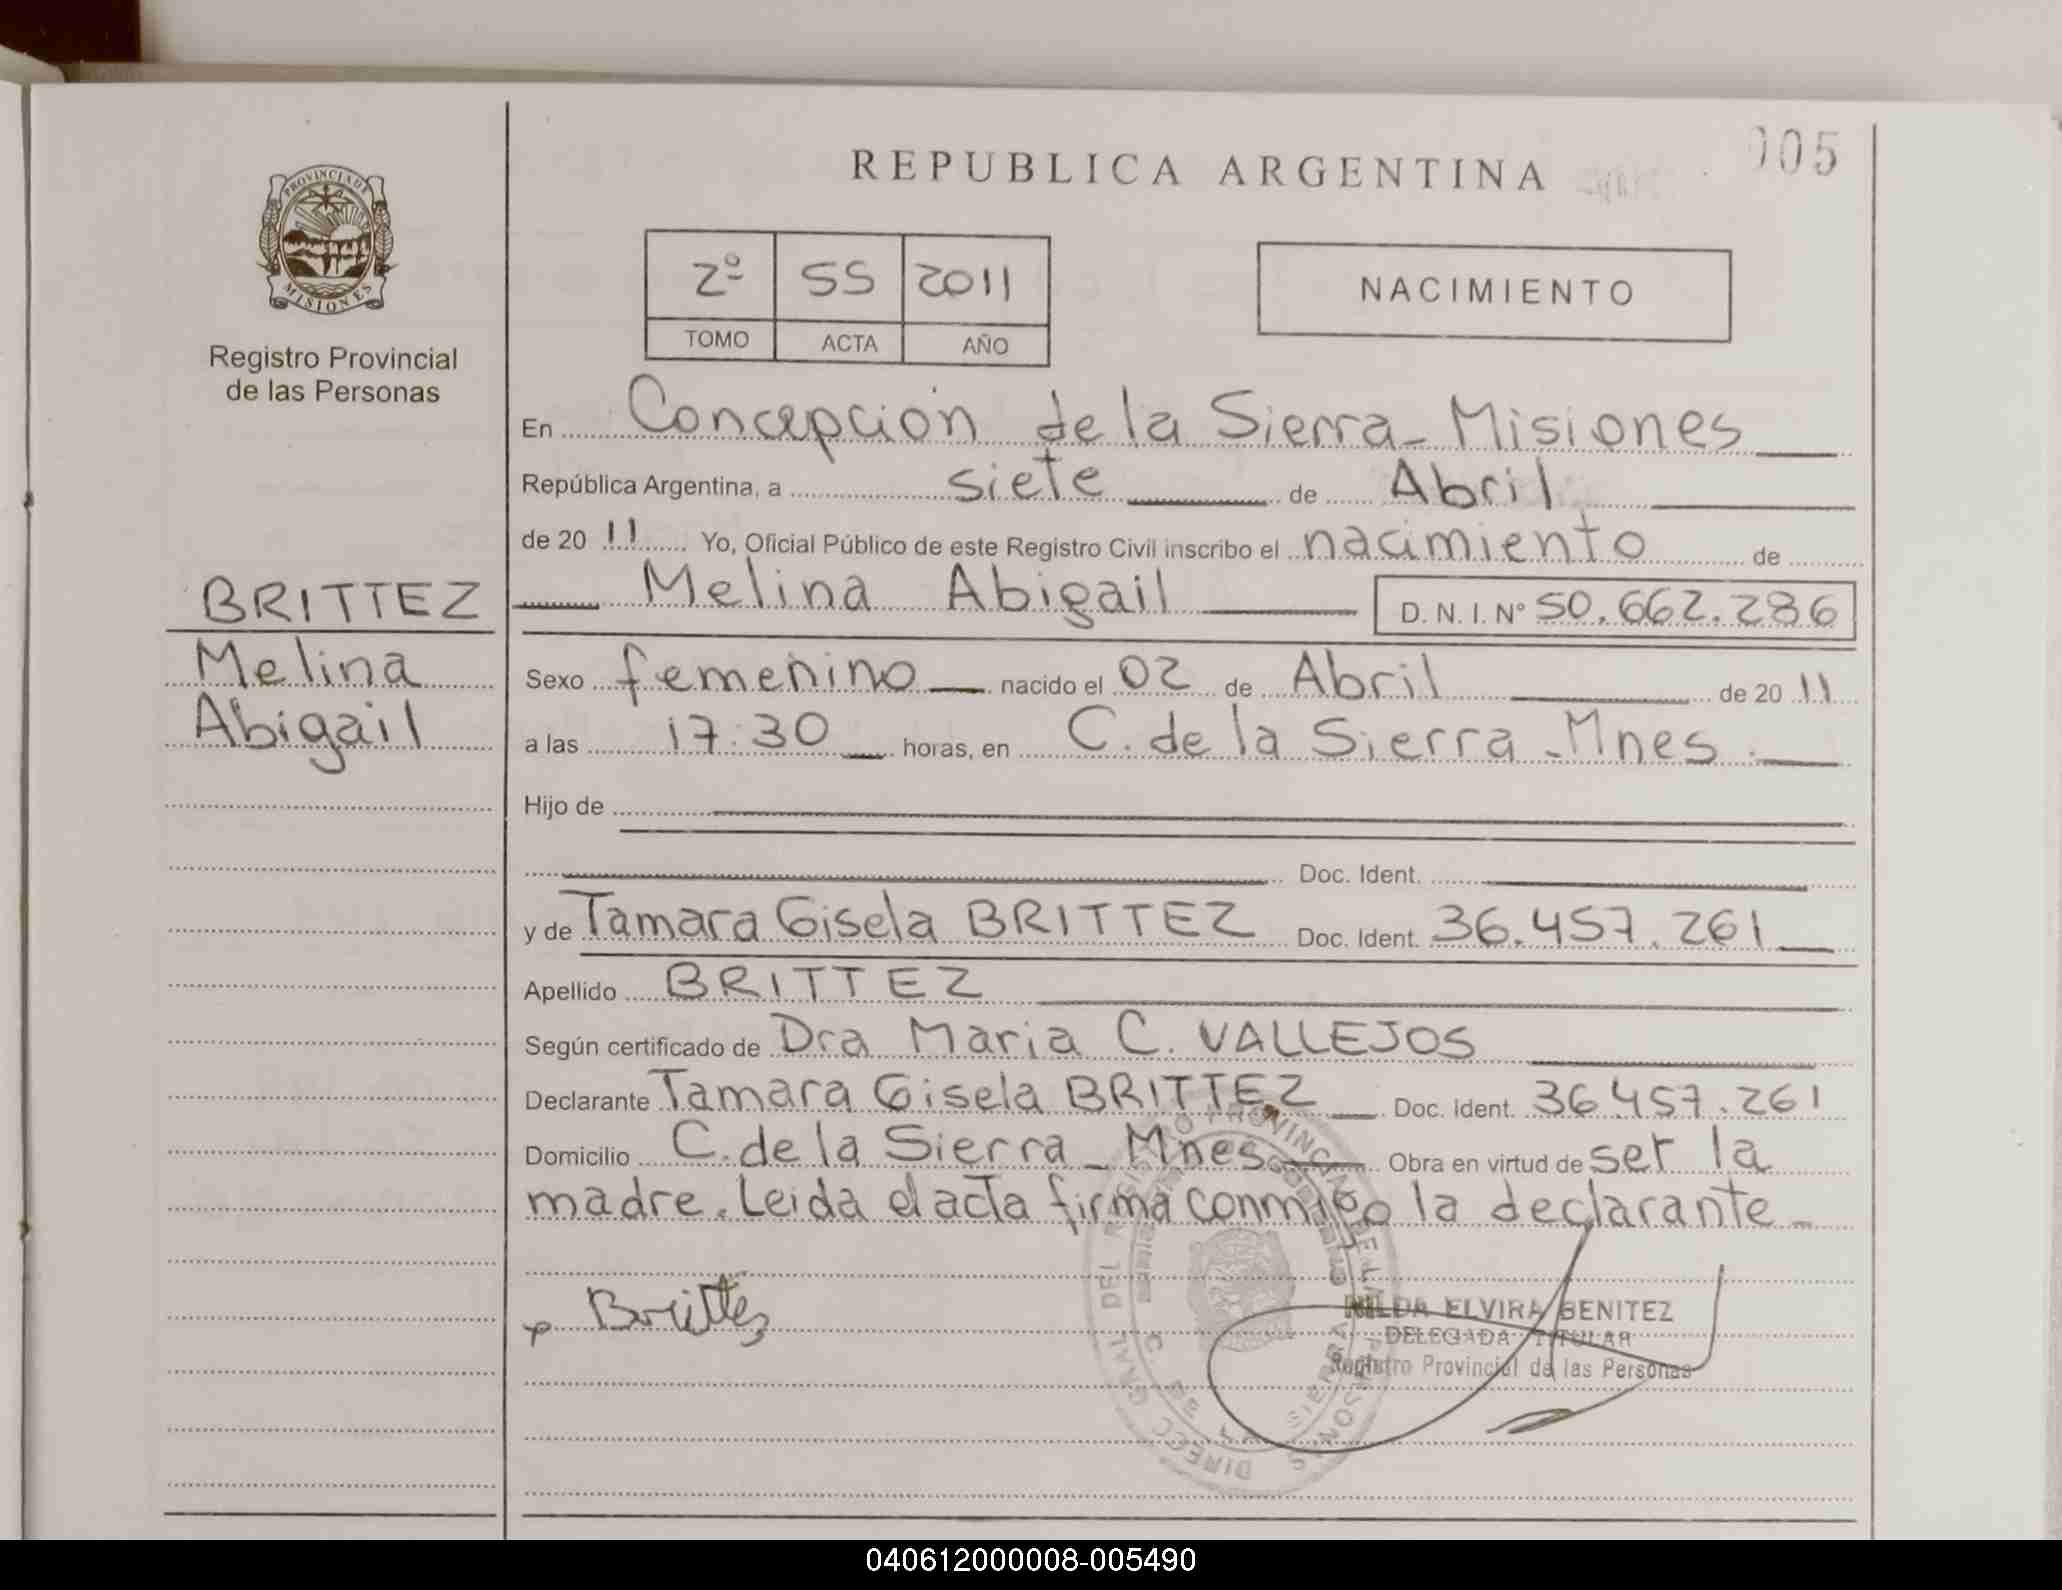 REPUBLICA ARGENTINA
105
PROVINCIA DE
MISIONES
Registro Provincial
de las Personas
2º 55 2011
TOMO ACTA AÑO
NACIMIENTO
En Concepción de la Sierra - Misiones
República Argentina, a siete de Abril
de 20 11 Yo, Oficial Público de este Registro Civil inscribo el nacimiento de
BRITTEZ
Melina
Abigail
Melina Abigail D. N. I. Nº 50.662.286
Sexo femenino nacido el 02 de Abril de 20 11
a las 17:30 horas, en C. de la Sierra - Mnes.
Hijo de
Doc. Ident.
y de Tamara Gisela BRITTEZ Doc. Ident. 36.457.261
Apellido BRITTEZ
Según certificado de Dra Maria C. VALLEJOS
Declarante Tamara Gisela BRITTEZ Doc. Ident. 36.457.261
Domicilio C. de la Sierra - Mnes Obra en virtud de ser la
madre. Leida el acta firma conmigo la declarante -
Brittez
NILDA ELVIRA BENITEZ
DELEGADA TITULAR
Registro Provincial de las Personas
040612000008-005490